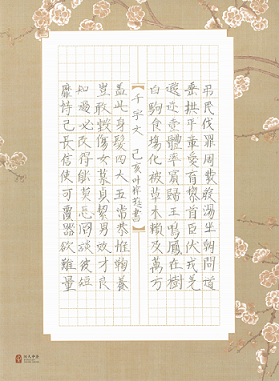 吊民伐罪周發殷湯坐朝問道
垂拱平章愛育黎首臣伏戎羌
遐迩壹體率賓歸王鳴鳳在樹
白駒食場化被草木賴及萬方
【千字文 己亥 書】
蓋此身髮四大五常恭惟鞠養
豈敢毀傷女慕貞絜男效才良
知過必改得能莫忘罔談彼短
靡恃己長信使可覆器欲難量